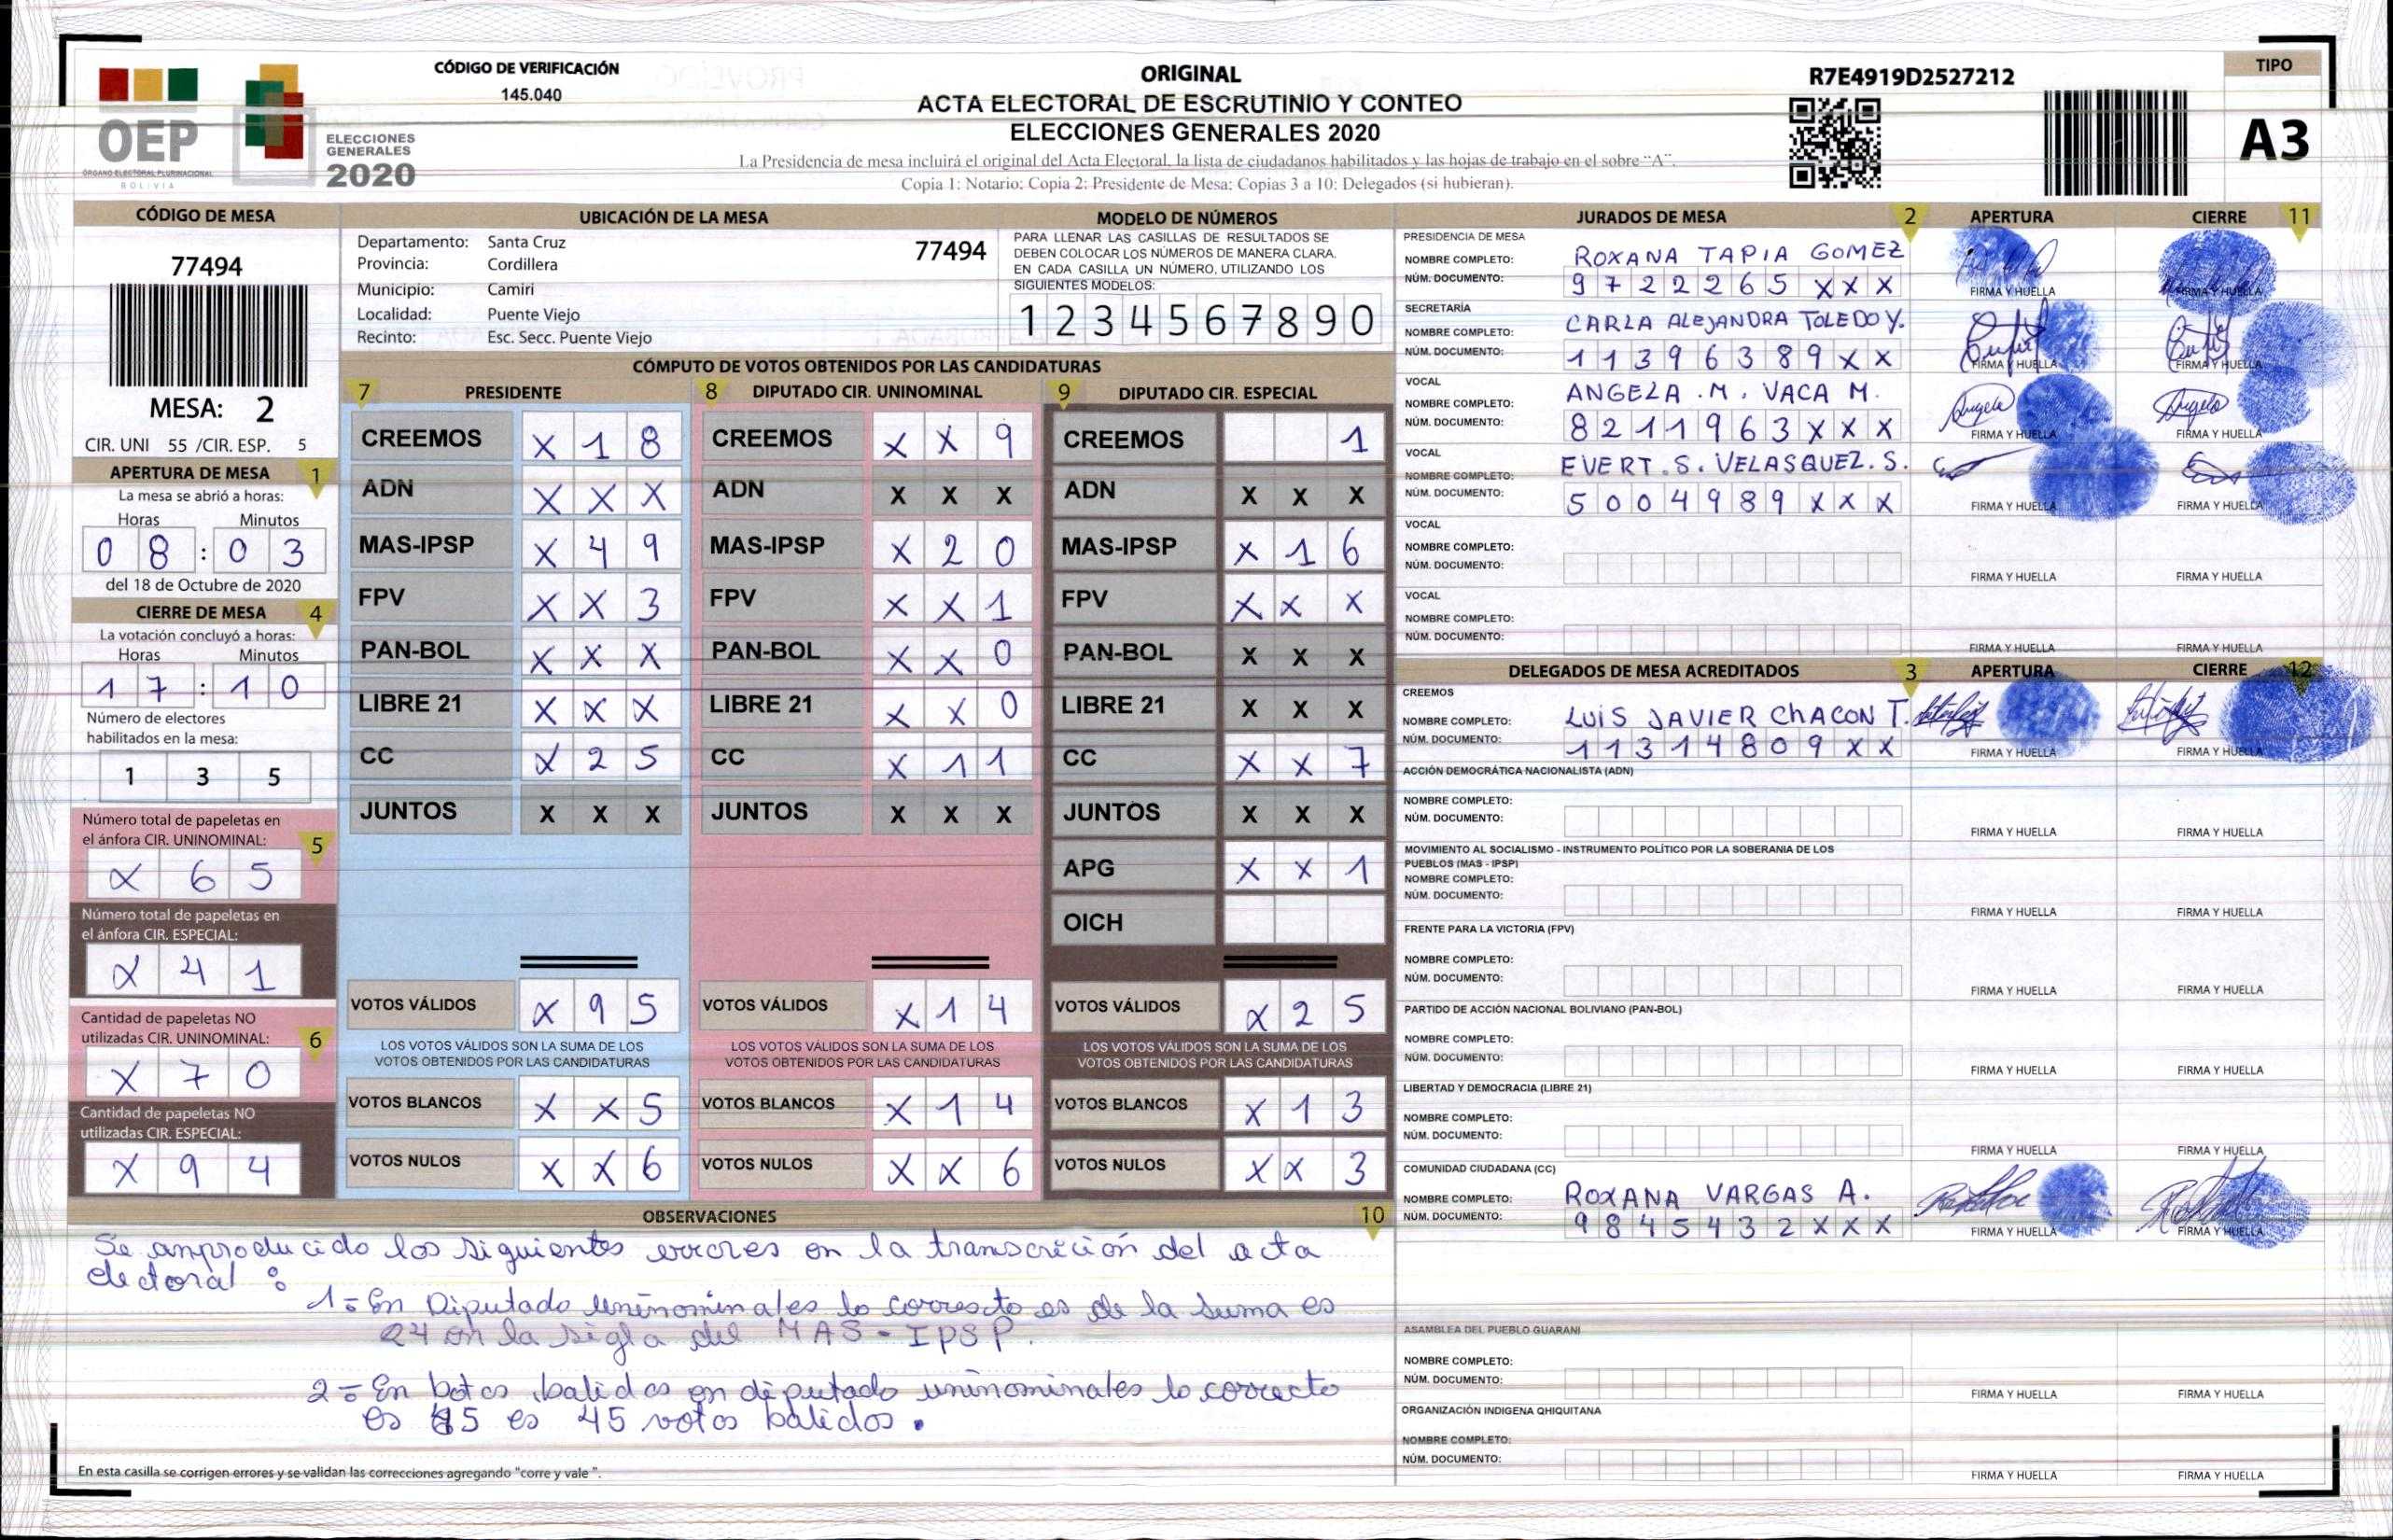 CÓDIGO DE VERIFICACIÓN
145.040
OEP
ÓRGANO ELECTORAL PLURINACIONAL
BOLIVIA
ELECCIONES
GENERALES
2020
ORIGINAL
ACTA ELECTORAL DE ESCRUTINIO Y CONTEO
ELECCIONES GENERALES 2020
La Presidencia de mesa incluirá el original del Acta Electoral, la lista de ciudadanos habilitados y las hojas de trabajo en el sobre "A".
Copia 1: Notario; Copia 2: Presidente de Mesa; Copias 3 a 10: Delegados (si hubieran).
R7E4919D2527212
TIPO
A3
CÓDIGO DE MESA
77494
MESA: 2
CIR. UNI 55 /CIR. ESP. 5
APERTURA DE MESA 1
La mesa se abrió a horas:
Horas Minutos
0 8 : 0 3
del 18 de Octubre de 2020
CIERRE DE MESA 4
La votación concluyó a horas:
Horas Minutos
1 7 : 1 0
Número de electores
habilitados en la mesa:
1 3 5
Número total de papeletas en
el ánfora CIR. UNINOMINAL: 5
X 6 5
Número total de papeletas en
el ánfora CIR. ESPECIAL:
X 4 1
Cantidad de papeletas NO
utilizadas CIR. UNINOMINAL: 6
X 7 0
Cantidad de papeletas NO
utilizadas CIR. ESPECIAL:
X 9 4
UBICACIÓN DE LA MESA
Departamento: Santa Cruz 77494
Provincia: Cordillera
Municipio: Camiri
Localidad: Puente Viejo
Recinto: Esc. Secc. Puente Viejo
MODELO DE NÚMEROS
PARA LLENAR LAS CASILLAS DE RESULTADOS SE
DEBEN COLOCAR LOS NÚMEROS DE MANERA CLARA.
EN CADA CASILLA UN NÚMERO, UTILIZANDO LOS
SIGUIENTES MODELOS:
1 2 3 4 5 6 7 8 9 0
CÓMPUTO DE VOTOS OBTENIDOS POR LAS CANDIDATURAS
7 PRESIDENTE 8 DIPUTADO CIR. UNINOMINAL 9 DIPUTADO CIR. ESPECIAL
CREEMOS X 1 8 CREEMOS X X 9 CREEMOS 1
ADN X X X ADN X X X ADN X X X
MAS-IPSP X 4 9 MAS-IPSP X 2 0 MAS-IPSP X 1 6
FPV X X 3 FPV X X 1 FPV X X X
PAN-BOL X X X PAN-BOL X X 0 PAN-BOL X X X
LIBRE 21 X X X LIBRE 21 X X 0 LIBRE 21 X X X
CC X 2 5 CC X 1 1 CC X X 7
JUNTOS X X X JUNTOS X X X JUNTOS X X X
APG X X 1
OICH
VOTOS VÁLIDOS X 9 5 VOTOS VÁLIDOS X 1 4 VOTOS VÁLIDOS X 2 5
LOS VOTOS VÁLIDOS SON LA SUMA DE LOS LOS VOTOS VÁLIDOS SON LA SUMA DE LOS LOS VOTOS VÁLIDOS SON LA SUMA DE LOS
VOTOS OBTENIDOS POR LAS CANDIDATURAS VOTOS OBTENIDOS POR LAS CANDIDATURAS VOTOS OBTENIDOS POR LAS CANDIDATURAS
VOTOS BLANCOS X X 5 VOTOS BLANCOS X 1 4 VOTOS BLANCOS X 1 3
VOTOS NULOS X X 6 VOTOS NULOS X X 6 VOTOS NULOS X X 3
OBSERVACIONES 10
Se amproducido los siguientes errores en la transcrición del acta
electoral :
1= En Diputado Uninominales lo correcto es de la suma es
24 en la sigla del MAS-IPSP.
2= En botos balidos en diputado uninominales lo correcto
es 45 es 45 votos balidos.
En esta casilla se corrigen errores y se validan las correcciones agregando "corre y vale ".
JURADOS DE MESA 2 APERTURA CIERRE 11
PRESIDENCIA DE MESA
NOMBRE COMPLETO: ROXANA TAPIA GOMEZ
NÚM. DOCUMENTO: 9 7 2 2 2 6 5 X X X FIRMA Y HUELLA FIRMA Y HUELLA
SECRETARÍA
NOMBRE COMPLETO: CARLA ALEJANDRA TOLEDO Y.
NÚM. DOCUMENTO: 1 1 3 9 6 3 8 9 X X FIRMA Y HUELLA FIRMA Y HUELLA
VOCAL
NOMBRE COMPLETO: ANGELA .M. VACA M.
NÚM. DOCUMENTO: 8 2 1 1 9 6 3 X X X FIRMA Y HUELLA FIRMA Y HUELLA
VOCAL
NOMBRE COMPLETO: EVERT.S. VELASQUEZ.S.
NÚM. DOCUMENTO: 5 0 0 4 9 8 9 X X X FIRMA Y HUELLA FIRMA Y HUELLA
VOCAL
NOMBRE COMPLETO:
NÚM. DOCUMENTO: FIRMA Y HUELLA FIRMA Y HUELLA
VOCAL
NOMBRE COMPLETO:
NÚM. DOCUMENTO: FIRMA Y HUELLA FIRMA Y HUELLA
DELEGADOS DE MESA ACREDITADOS 3 APERTURA CIERRE 12
CREEMOS
NOMBRE COMPLETO: LUIS JAVIER CHACON T.
NÚM. DOCUMENTO: 1 1 3 1 4 8 0 9 X X FIRMA Y HUELLA FIRMA Y HUELLA
ACCIÓN DEMOCRÁTICA NACIONALISTA (ADN)
NOMBRE COMPLETO:
NÚM. DOCUMENTO: FIRMA Y HUELLA FIRMA Y HUELLA
MOVIMIENTO AL SOCIALISMO - INSTRUMENTO POLÍTICO POR LA SOBERANIA DE LOS
PUEBLOS (MAS - IPSP)
NOMBRE COMPLETO:
NÚM. DOCUMENTO: FIRMA Y HUELLA FIRMA Y HUELLA
FRENTE PARA LA VICTORIA (FPV)
NOMBRE COMPLETO:
NÚM. DOCUMENTO: FIRMA Y HUELLA FIRMA Y HUELLA
PARTIDO DE ACCIÓN NACIONAL BOLIVIANO (PAN-BOL)
NOMBRE COMPLETO:
NÚM. DOCUMENTO: FIRMA Y HUELLA FIRMA Y HUELLA
LIBERTAD Y DEMOCRACIA (LIBRE 21)
NOMBRE COMPLETO:
NÚM. DOCUMENTO: FIRMA Y HUELLA FIRMA Y HUELLA
COMUNIDAD CIUDADANA (CC)
NOMBRE COMPLETO: ROXANA VARGAS A.
NÚM. DOCUMENTO: 9 8 4 5 4 3 2 X X X FIRMA Y HUELLA FIRMA Y HUELLA
ASAMBLEA DEL PUEBLO GUARANI
NOMBRE COMPLETO:
NÚM. DOCUMENTO: FIRMA Y HUELLA FIRMA Y HUELLA
ORGANIZACIÓN INDIGENA QHIQUITANA
NOMBRE COMPLETO:
NÚM. DOCUMENTO: FIRMA Y HUELLA FIRMA Y HUELLA